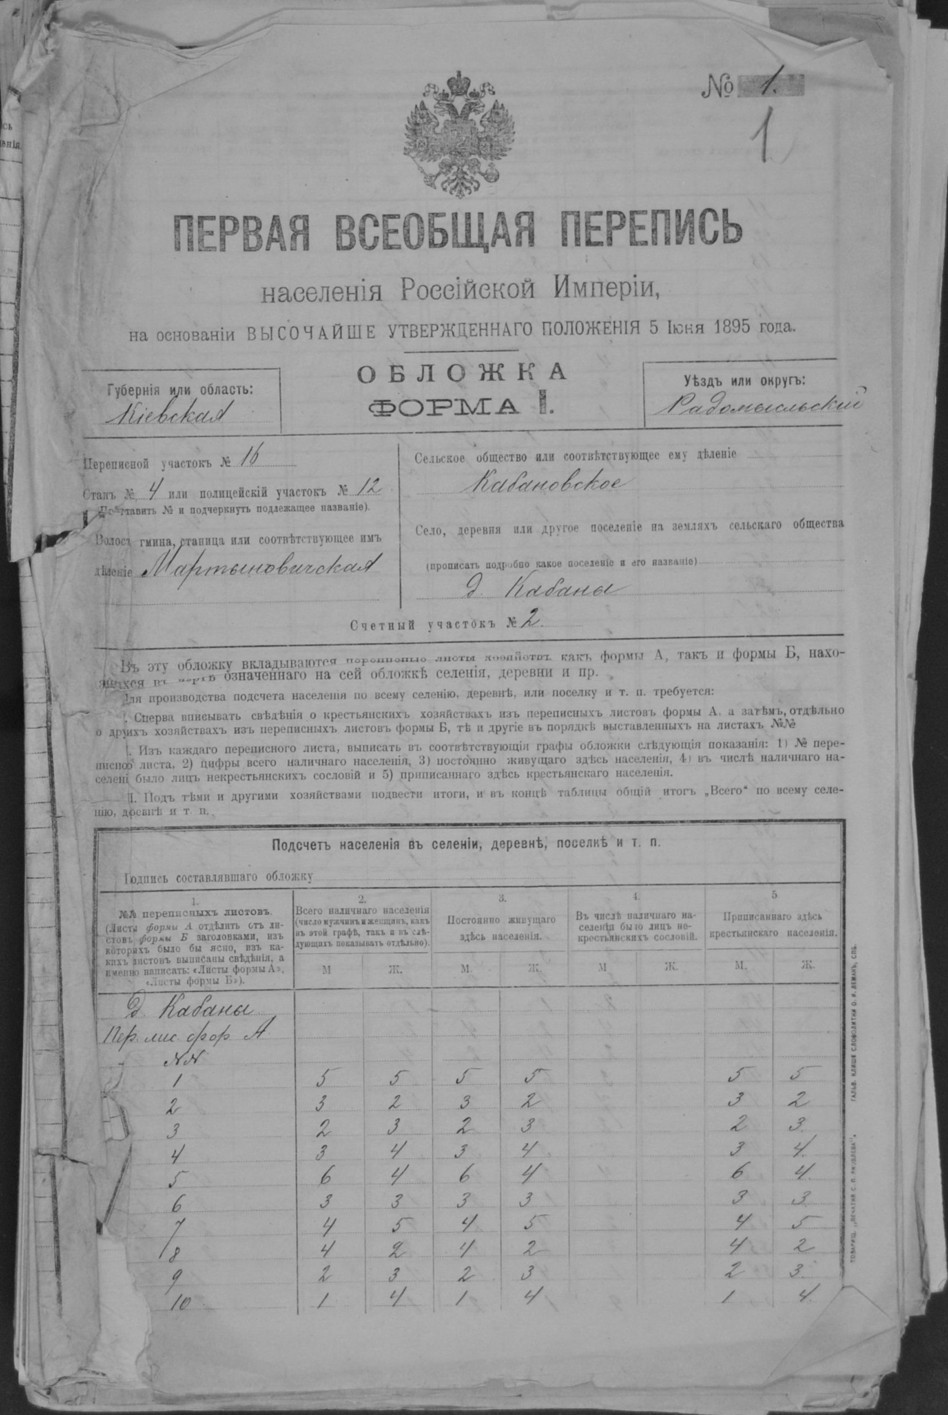 № 1.
1
ПЕРВАЯ ВСЕОБЩАЯ ПЕРЕПИСЬ
населенія Россійской Имперіи,
на основаніи ВЫСОЧАЙШЕ УТВЕРЖДЕННАГО ПОЛОЖЕНІЯ 5 Іюня 1895 года.
ОБЛОЖКА
ФОРМА I.
Губернія или область:
Кіевская
Уѣздъ или округъ:
Радомысльскій
Переписной участокъ № 16
Станъ № 4 или полицейскій участокъ № 12
(Поставить № и подчеркнуть подлежащее названіе).
гмина, станица или соотвѣтствующее имъ
дѣленіе Мартыновичская
Сельское общество или соотвѣтствующее ему дѣленіе
Кабановское
Село, деревня или другое поселеніе на земляхъ сельскаго общества
(прописать подробно какое поселеніе и его названіе)
д. Кабаны
Счетный участокъ № 2
Въ эту обложку вкладываются переписные листы хозяйствъ какъ формы А, такъ и формы Б, нахо-
означеннаго на сей обложкѣ селенія, деревни и пр.
Для производства подсчета населенія по всему селенію, деревнѣ, или поселку и т. п. требуется:
Сперва вписывать свѣдѣнія о крестьянскихъ хозяйствахъ изъ переписныхъ листовъ формы А, а затѣмъ, отдѣльно
о другихъ хозяйствахъ изъ переписныхъ листовъ формы Б, тѣ и другіе въ порядкѣ выставленныхъ на листахъ №№
Изъ каждаго переписного листа, выписать въ соотвѣтствующія графы обложки слѣдующія показанія: 1) № пере-
писного листа, 2) цифры всего наличнаго населенія, 3) постоянно живущаго здѣсь населенія, 4) въ числѣ наличнаго на-
селенія было лицъ некрестьянскихъ сословій и 5) приписаннаго здѣсь крестьянскаго населенія.
Подъ тѣми и другими хозяйствами подвести итоги, и въ концѣ таблицы общій итогъ „Всего“ по всему селе-
нію, деревнѣ и т. п.
Подсчетъ населенія въ селеніи, деревнѣ, поселкѣ и т. п.
Подпись составлявшаго обложку
1. 2. 3. 4. 5
№№ переписныхъ листовъ.
(Листы формы А отдѣлить отъ ли-
стовъ формы Б заголовками, изъ
которыхъ было бы ясно, изъ ка-
кихъ листовъ выписаны свѣдѣнія, а
именно вписать: «Листы формы А»,
«Листы формы Б»).
Всего наличнаго населенія
(число мужчинъ и женщинъ, какъ
въ этой графѣ, такъ и въ слѣ-
дующихъ показывать отдѣльно).
Постоянно живущаго
здѣсь населенія.
Въ числѣ наличнаго на-
селенія было лицъ не-
крестьянскихъ сословій.
Приписаннаго здѣсь
крестьянскаго населенія.
М Ж. М. Ж. М Ж. М. Ж.
Д. Кабаны
Пер. лис. фор А
NN
1 5 5 5 5 5 5
2 3 2 3 2 3 2
3 2 3 2 3 2 3
4 3 4 3 4 3 4
5 6 4 6 4 6 4
6 3 3 3 3 3 3
7 4 5 4 5 4 5
8 4 2 4 2 4 2
9 2 3 2 3 2 3
10 1 4 1 4 1 4